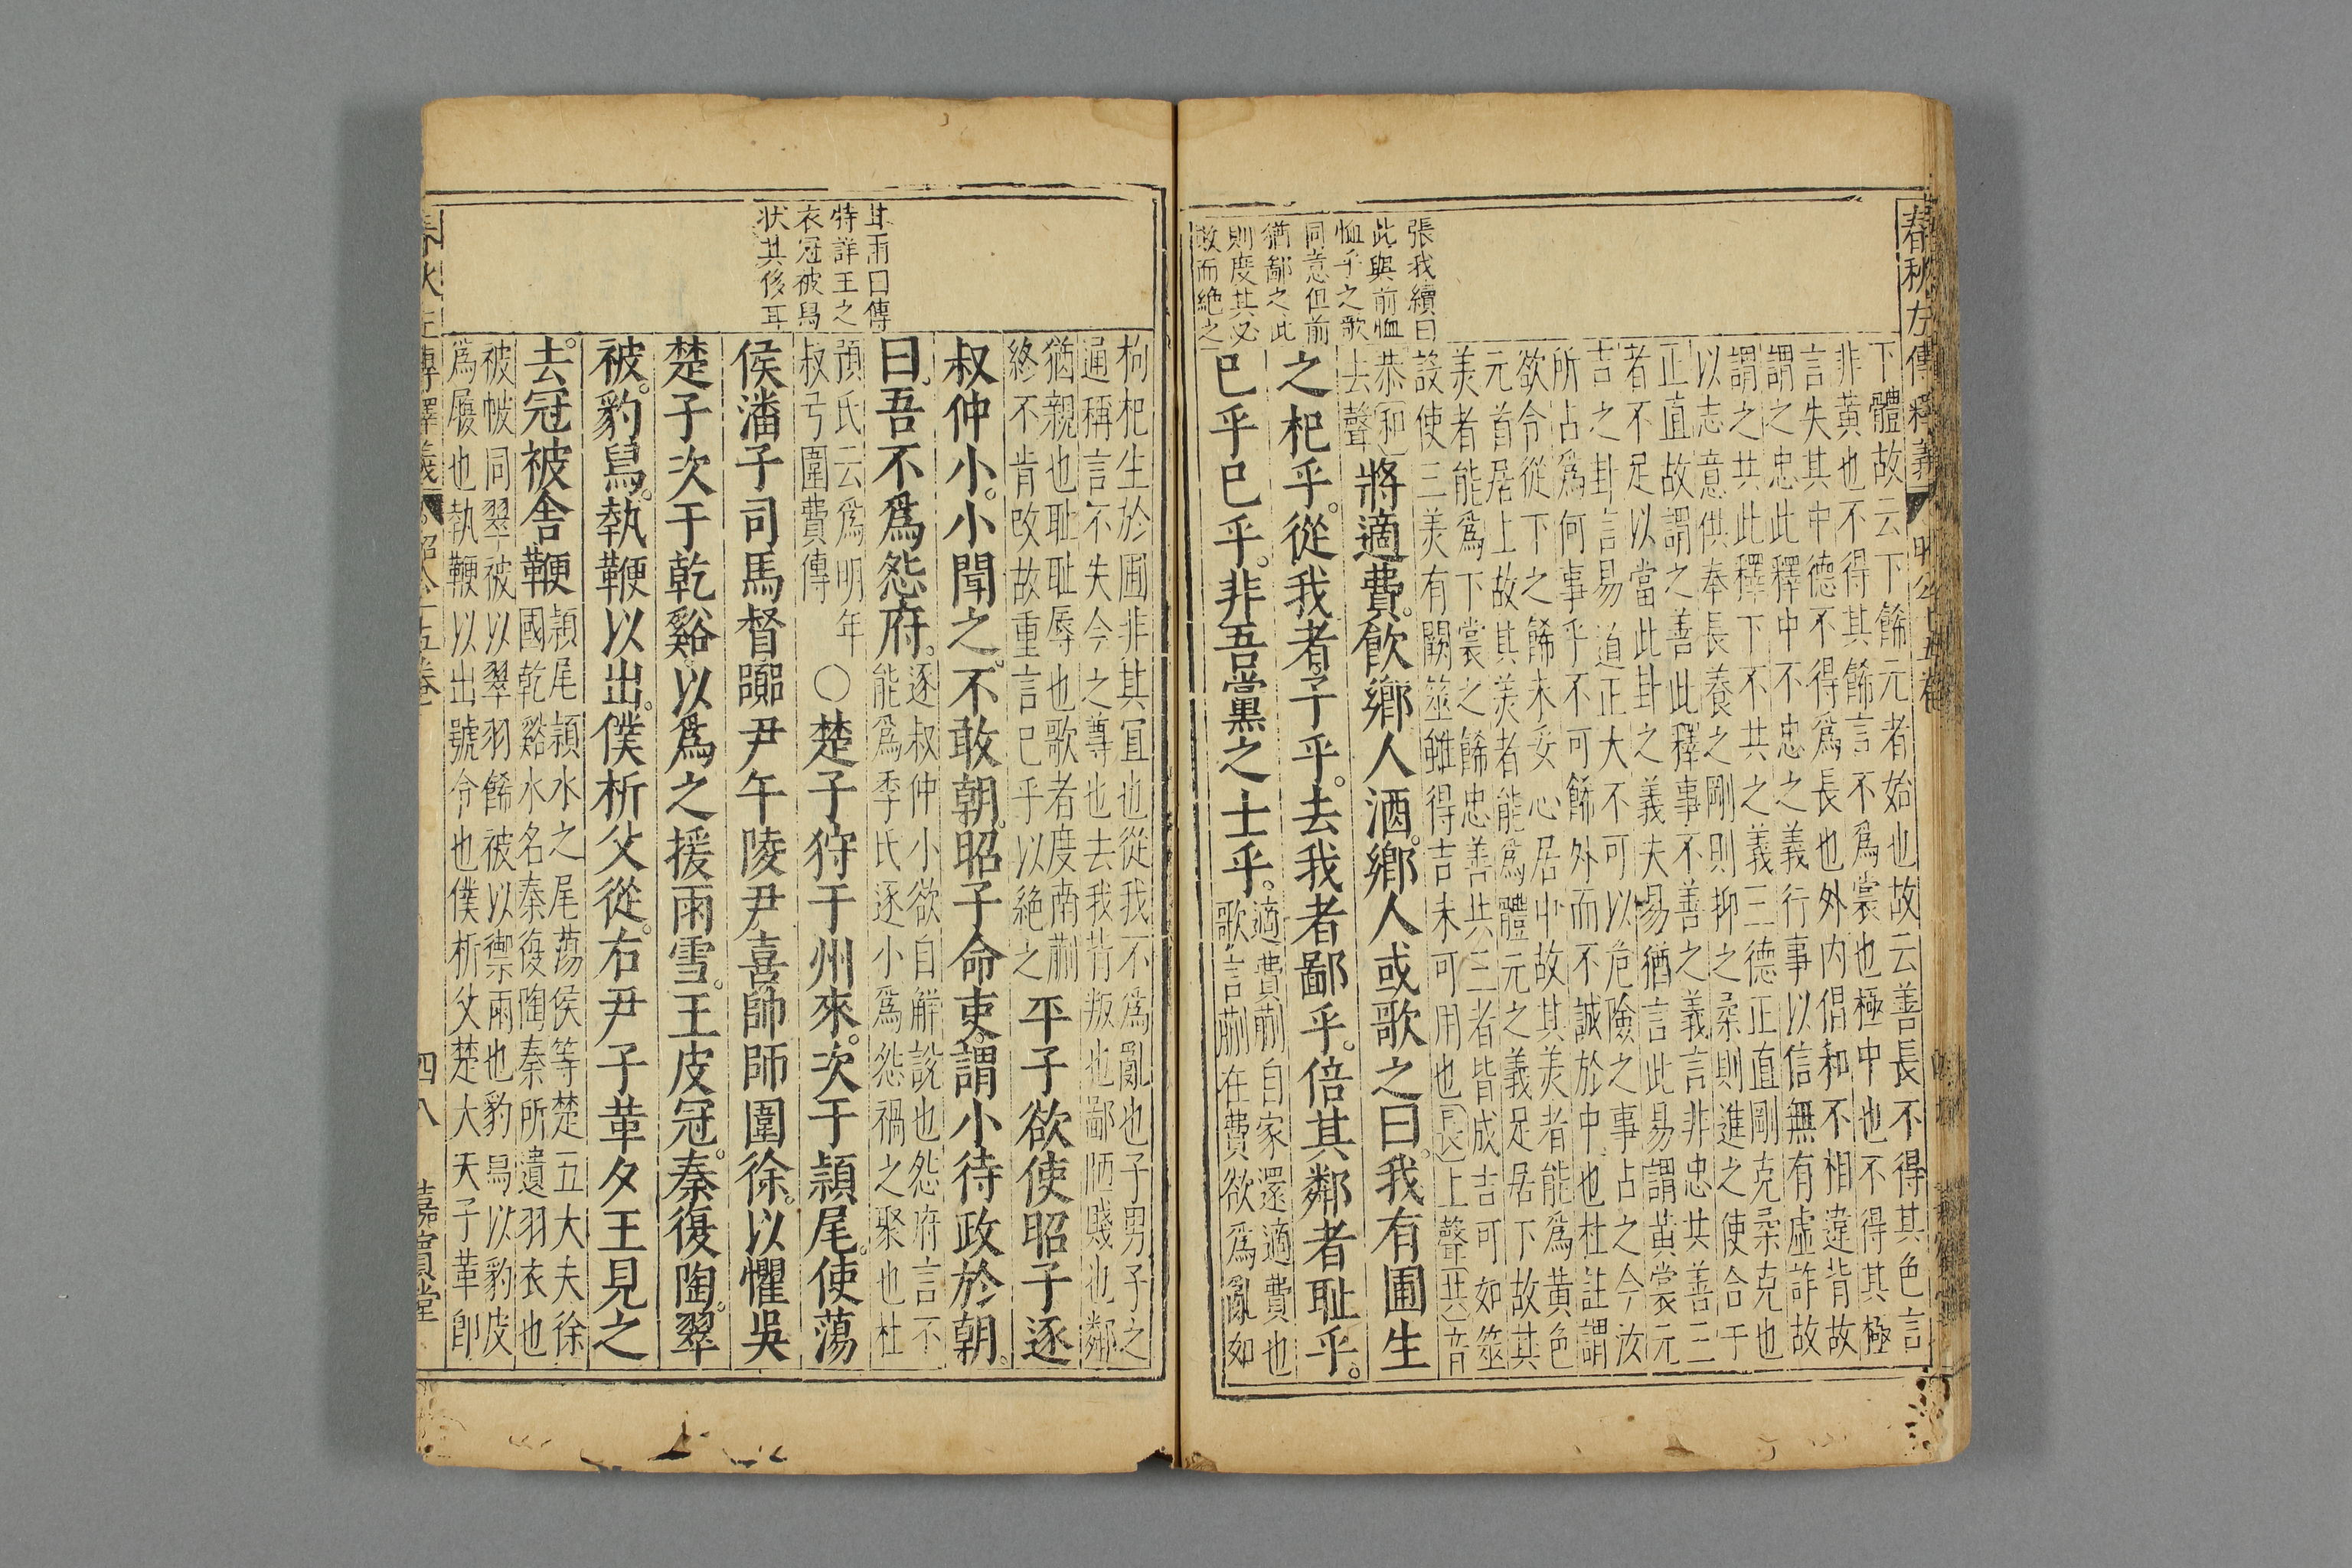 春秋左傳釋義
張我續曰
此與前恤
恤乎之歌
同意但前
猶鄙之此
則度其必
敢而絶之
下體故云下餙元者始也故云善長不得其色言
非黄也不得其餙言不爲裳也極中也不得其極
言失其中德不得爲長也外内倡和不相違背故
謂之忠此釋中不忠之義行事以信無有虚詐故
謂之共此釋下不共之義三德正直剛克柔克也
以志意供奉長養之剛則抑之柔則進之使合于
正直故謂之善此釋事不善之義言非忠共善三
者不足以當此卦之義夫易猶言此易謂黄裳元
吉之卦言易道正大不可以危險之事占之今汝
所占爲何事乎不可餙外而不誠於中也杜註謂
欲令從下之餙未妥心居中故其美者能爲黄色
元首居上故其美者能爲體元之義足居下故其
美者能爲下裳之餙忠善共三者皆成吉可如筮
設使三美有闕筮雖得吉未可用也長上聲共音
恭和
去聲
將適費飲鄉人酒鄉人或歌之曰我有圃生
之杞乎從我者子乎去我者鄙乎倍其鄰者耻乎
已乎已乎非吾黨之士乎
適費蒯自家還適費也
歌言蒯在費欲爲亂如
枸杞生於圃非其宜也從我不爲亂也子男子之
通稱言不失今之尊也去我背叛也鄙陋賤也鄰
猶親也耻耻辱也歌者度南蒯
終不肯改故重言已乎以絶之
平子欲使昭子逐
叔仲小小聞之不敢朝昭子命吏謂小待政於朝
曰吾不爲怨府
逐叔仲小欲自解説也怨府言不
能爲季氏逐小爲怨禍之聚也杜
預氏云爲明年
叔弓圍費傳
○楚子狩于州來次于潁尾使蕩
侯潘子司馬督嚻尹午陵尹喜帥師圍徐以懼吳
楚子次于乾谿以爲之援雨雪王皮冠秦復陶翠
被豹舄執鞭以出僕析父從右尹子革夕王見之
去冠被舍鞭
潁尾潁水之尾蕩侯等楚五大夫徐
國乾谿水名秦復陶秦所遺羽衣也
被帔同翠被以翠羽餙被以禦雨也豹舄以豹皮
爲履也執鞭以出號令也僕析父楚大夫子革卽
特詳王之
衣冠被舄
狀其侈耳
四八
嘉賓堂